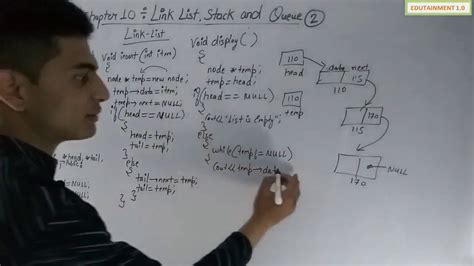 EDUTAINMENT 1.0
Chapter 10 ÷ Link List, Stack and Queue ②
Link-List
void insert (int item)
{
node *temp = new node;
temp → data = item;
temp → next = NULL;
if (head == NULL)
{
head = temp;
tail = temp;
}
else
{
tail → next = temp;
tail = temp;
} }
*head, *tail,
void display()
{
node *temp;
temp = head;
if (head == NULL)
{
cout<< "List is Empty";
}
else
{
while (temp != NULL)
cout<< temp → data
110
head
110
temp
data next
115
110
170
115
NULL
170